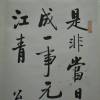 是非當日
成一事元
江青